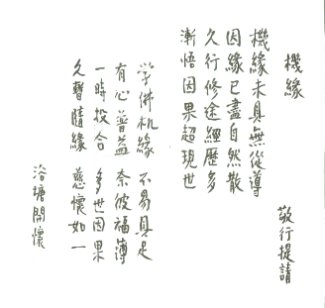 機緣
敬行提請
機緣未具無從導
因緣已盡自然散
久行修途經歷多
漸悟因果超現世
学佛机緣 不易具足
有心普益 奈彼福薄
一時投合 多世因果
久暫隨緣 慈懷如一
洛塘開懷